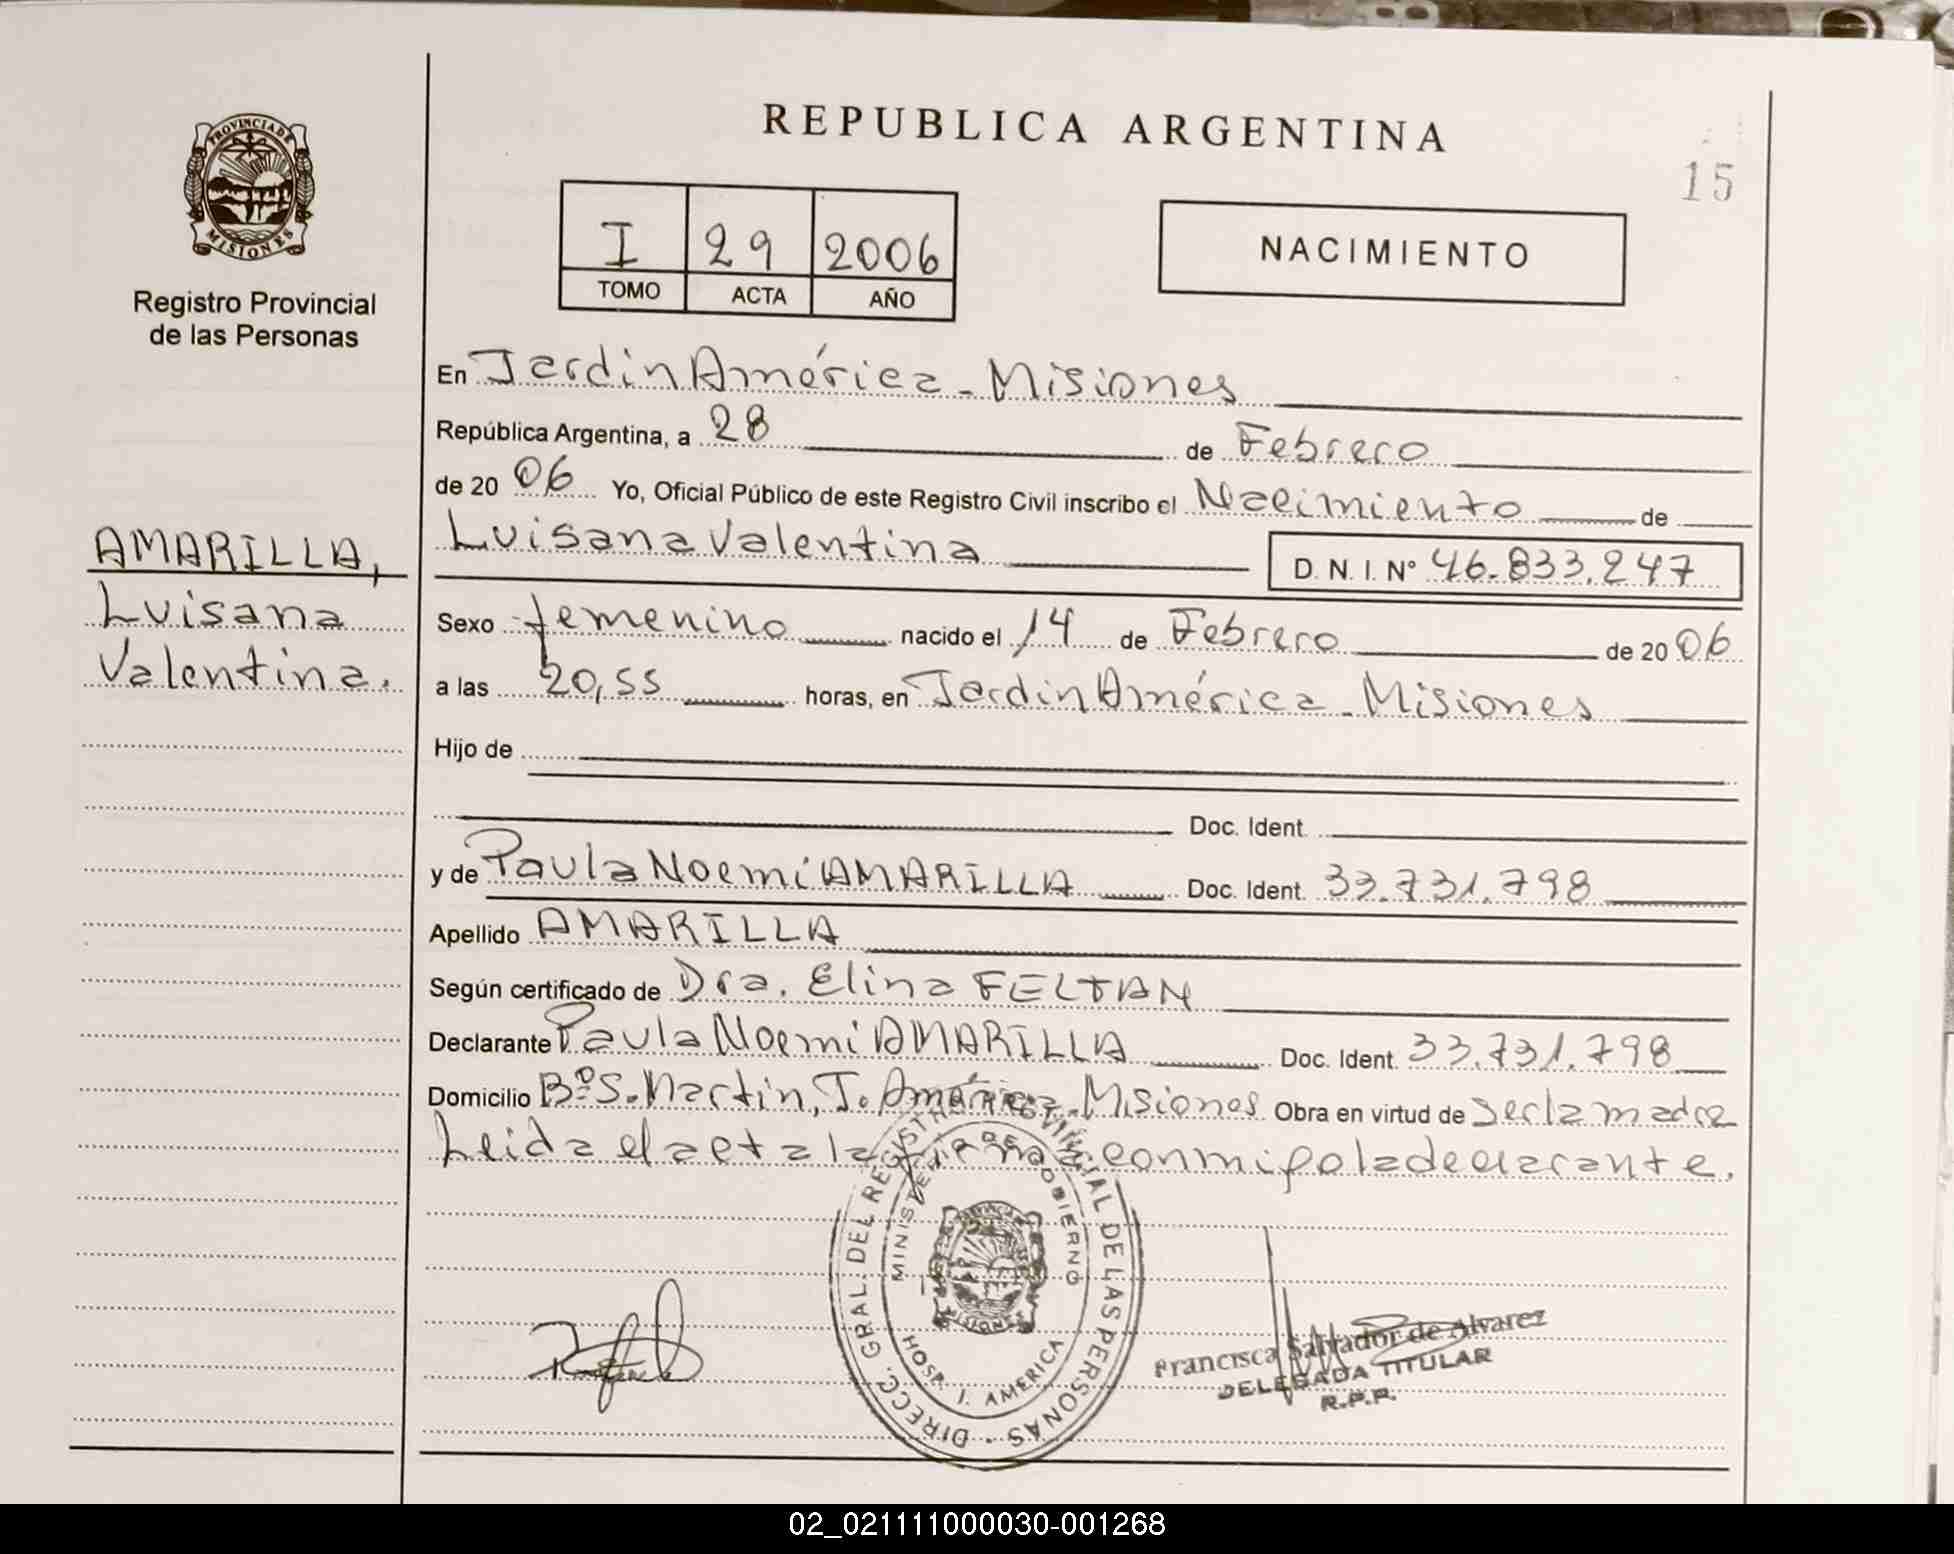 REPUBLICA ARGENTINA
15
PROVINCIA DE
MISIONES
Registro Provincial
de las Personas
I 29 2006
TOMO ACTA AÑO
NACIMIENTO
En Jardin América - Misiones
República Argentina, a 28 de Febrero
de 2006 Yo, Oficial Público de este Registro Civil inscribo el Nacimiento de
Luisana Valentina D. N. I. N° 46.833.247
AMARILLA,
Luisana
Valentina.
Sexo femenino nacido el 14 de Febrero de 2006
a las 20,55 horas, en Jardin América - Misiones
Hijo de
Doc. Ident.
y de Paula Noemi AMARILLA Doc. Ident. 33.731.798
Apellido AMARILLA
Según certificado de Dra. Elina FELTAN
Declarante Paula Noemi AMARILLA Doc. Ident. 33.731.798
Domicilio B° S. Martin, J. América - Misiones Obra en virtud de ser la madre
Leida el acta la firma conmigo la declarante.
DIRECC. GRAL. DEL REGISTRO PROVINCIAL DE LAS PERSONAS
MINISTERIO DE GOBIERNO
MISIONES
HOSP. J. AMERICA
Francisca Salvador de Alvarez
DELEGADA TITULAR
R.P.P.
02_021111000030-001268